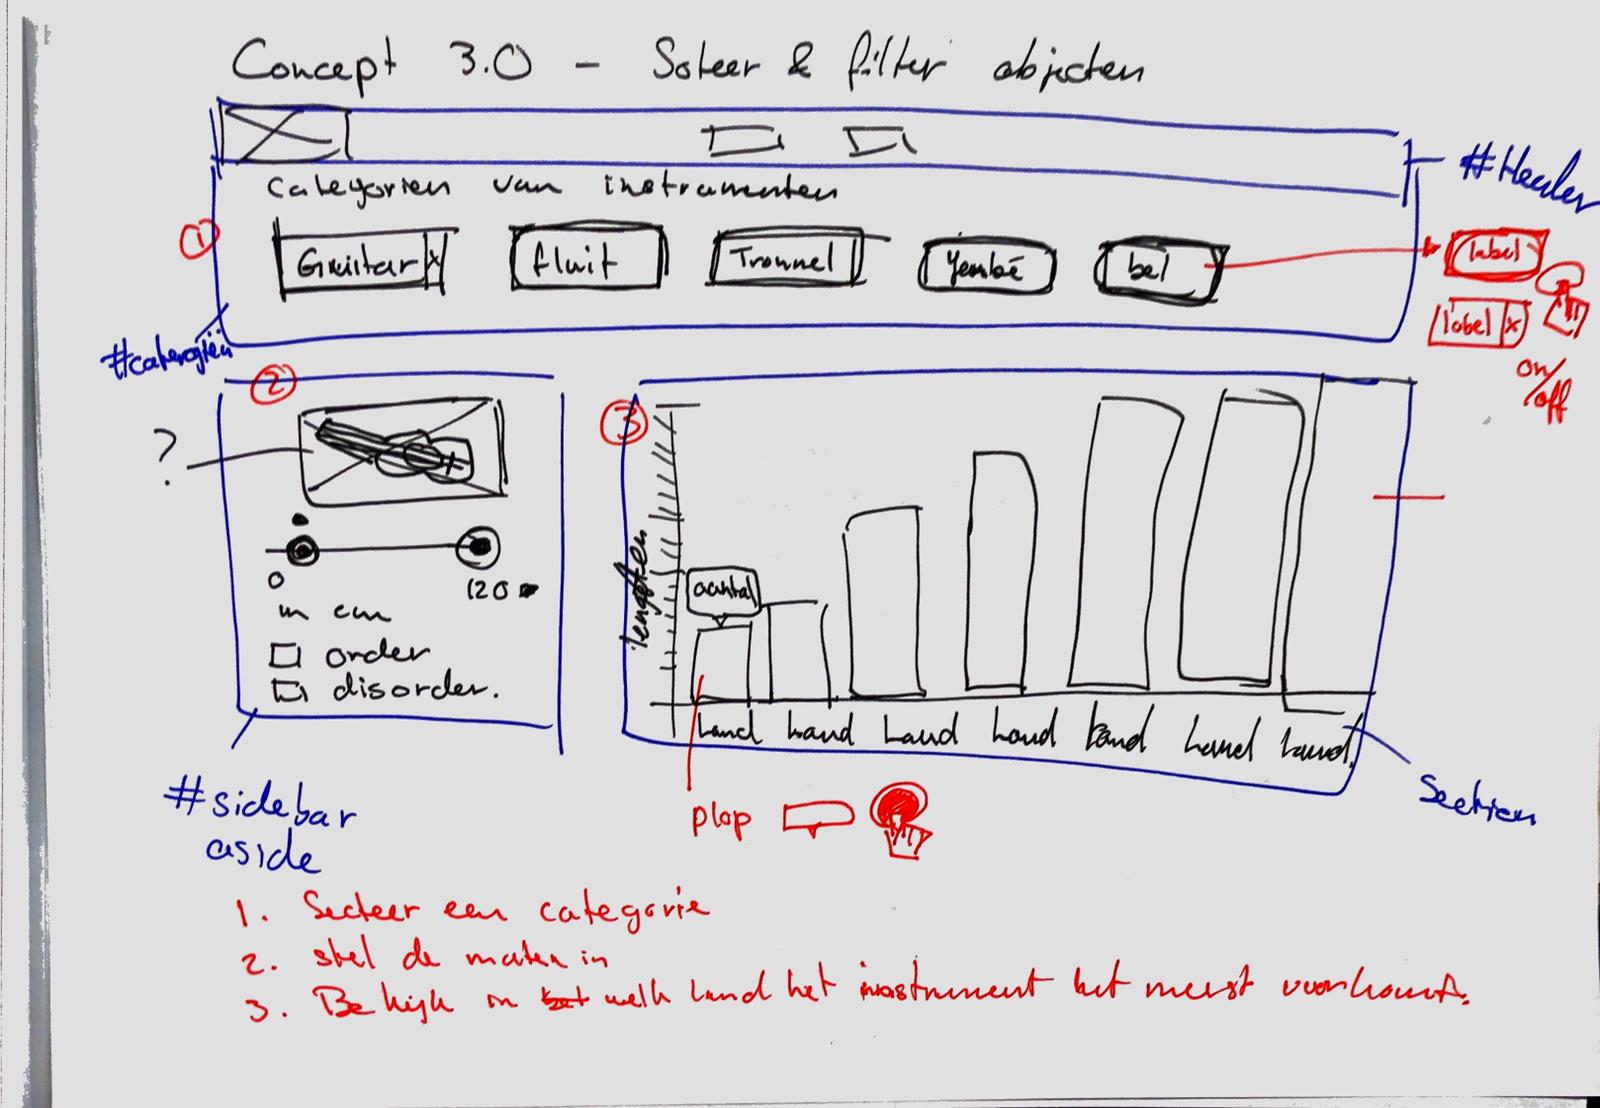 Concept 3.0 - Soteer & filter objecten
#Header
Categoriën van instrumenten
1
Guitar x
fluit
Trommel
Yembé
bel
label
label x
on/off
#catergiën
2
?
0
120
in cm
order
disorder.
3
lengten
aantal
Land Land Land Land Land Land Land.
Section
plop
#sidebar
aside
1. Secteer een categorie
2. stel de maten in
3. Bekijk in welk land het instrument het meest voorkomt.